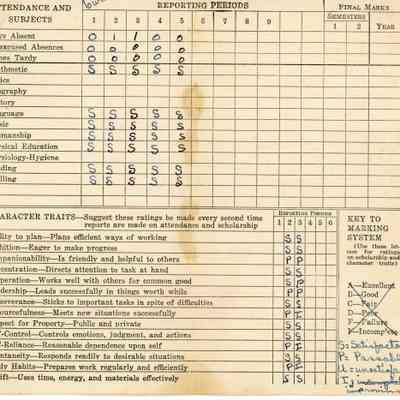 TTENDANCE AND SUBJECTS REPORTING PERIODS FINAL MARKS
SEMESTERS YEAR
1 2 3 4 5 6 7 8 9 1 2
Absent 0 1 1 0 0
excused Absences 0 0 0 0 0
es Tardy 0 0 0 0 0
thmetic S S S S S
ics
ography
tory
nguage S S S S S
sic S S S S S
manship S S S S S
ysical Education S S S S S
ysiology-Hygiene
ding S S S S S
lling S S S S S
ARACTER TRAITS—Suggest these ratings be made every second time reports are made on attendance and scholarship
REPORTING PERIODS
1 2 3 4 5 6
lity to plan—Plans efficient ways of working S S
bition—Eager to make progress S S
mpanionability—Is friendly and helpful to others P P
centration—Directs attention to task at hand S S
operation—Works well with others for common good S S
dership—Leads successfully in things worth while P P
severance—Sticks to important tasks in spite of difficulties S S
ourcefulness—Meets new situations successfully P I
pect for Property—Public and private S S
f-Control—Controls emotions, judgment, and actions S S
f-Reliance—Reasonable dependence upon self P I
ntaneity—Responds readily to desirable situations S S
dy Habits—Prepares work regularly and efficiently P I
ift—Uses time, energy, and materials effectively S S
KEY TO
MARKING
SYSTEM
(Use these let-
ters for ratings
on scholarship and
character traits)
A—Excellent
B—Good
C—Fair
D—Poor
F—Failure
Incomplete
S: Satisfacto
P: Passabl
U: unsatisfa
I: